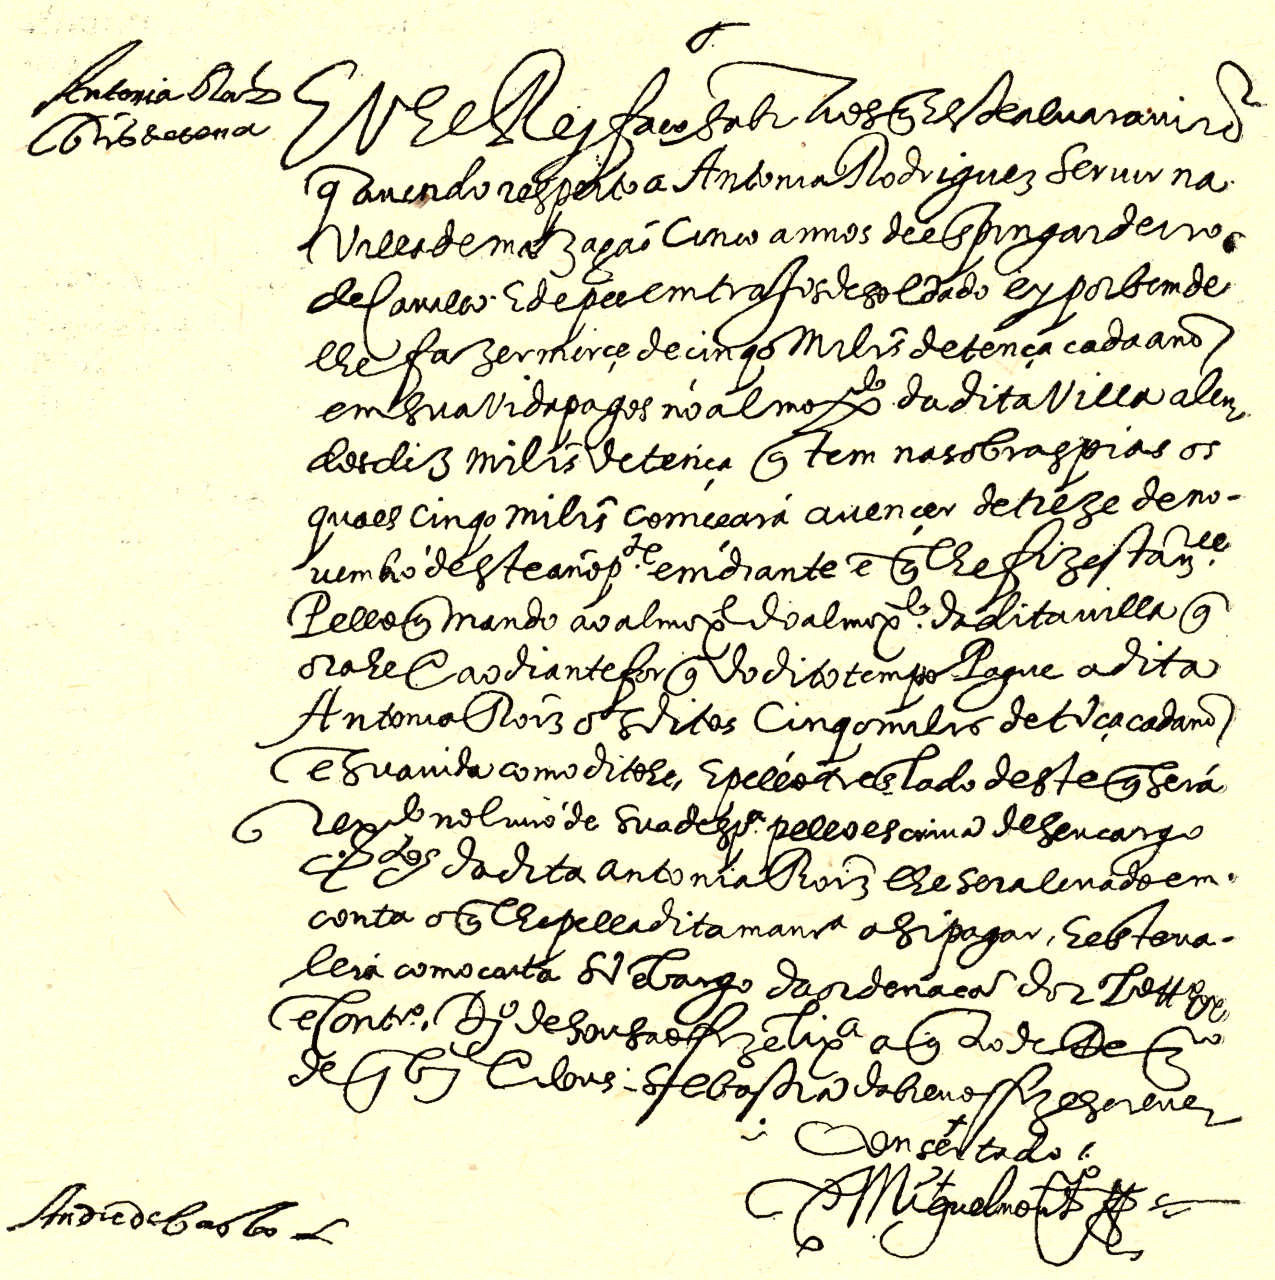 Antonia Roiz
EV El Rey faço saber aos q̃ este aluara virẽ
q̃ auendo respeito a Antonia Rodriguez seruir na
Villa de mazagaõ Cinco annos de espingardeiro
de Cauallo E de pee em trajos de soldado ey por bem de
lhe fazer merçe de cinqo mil rs̃ de tença cada anõ
em sua vida pagos nó almox.do da dita villa alem
dos diz mil rs̃ de tença q̃ tem nas obras pias os
quoaes cinqo mil rs̃ começará a vençer de treze de no-
uembró de este año p.te em diante e q̃ lhe fiz esta m.ce
Pello q̃ mando ao almox.e do almox.do da dita villa q̃
ora he E ao diante for q̃ do dito tempo Pague a dita
Antonia Roiz os ditos Cinqo mil rs de tẽça cada anõ
e sua uida como dito he, E pello treslado deste q̃ será
Reg.do no liuro de sua desp.a pello escriuã de seu cargo
da dita antonia Roiz lhe sera leuado em
conta o q̃ lhe pella dita manr.a asi pagar, E este va-
lera como carta sẽ ẽbargo da ordenaçaõ do 2
e Contr.o, de sousa o fez e lix.a a q̃
de Sebastiã dabreu o fiz escreuer
Consertado
Miguel